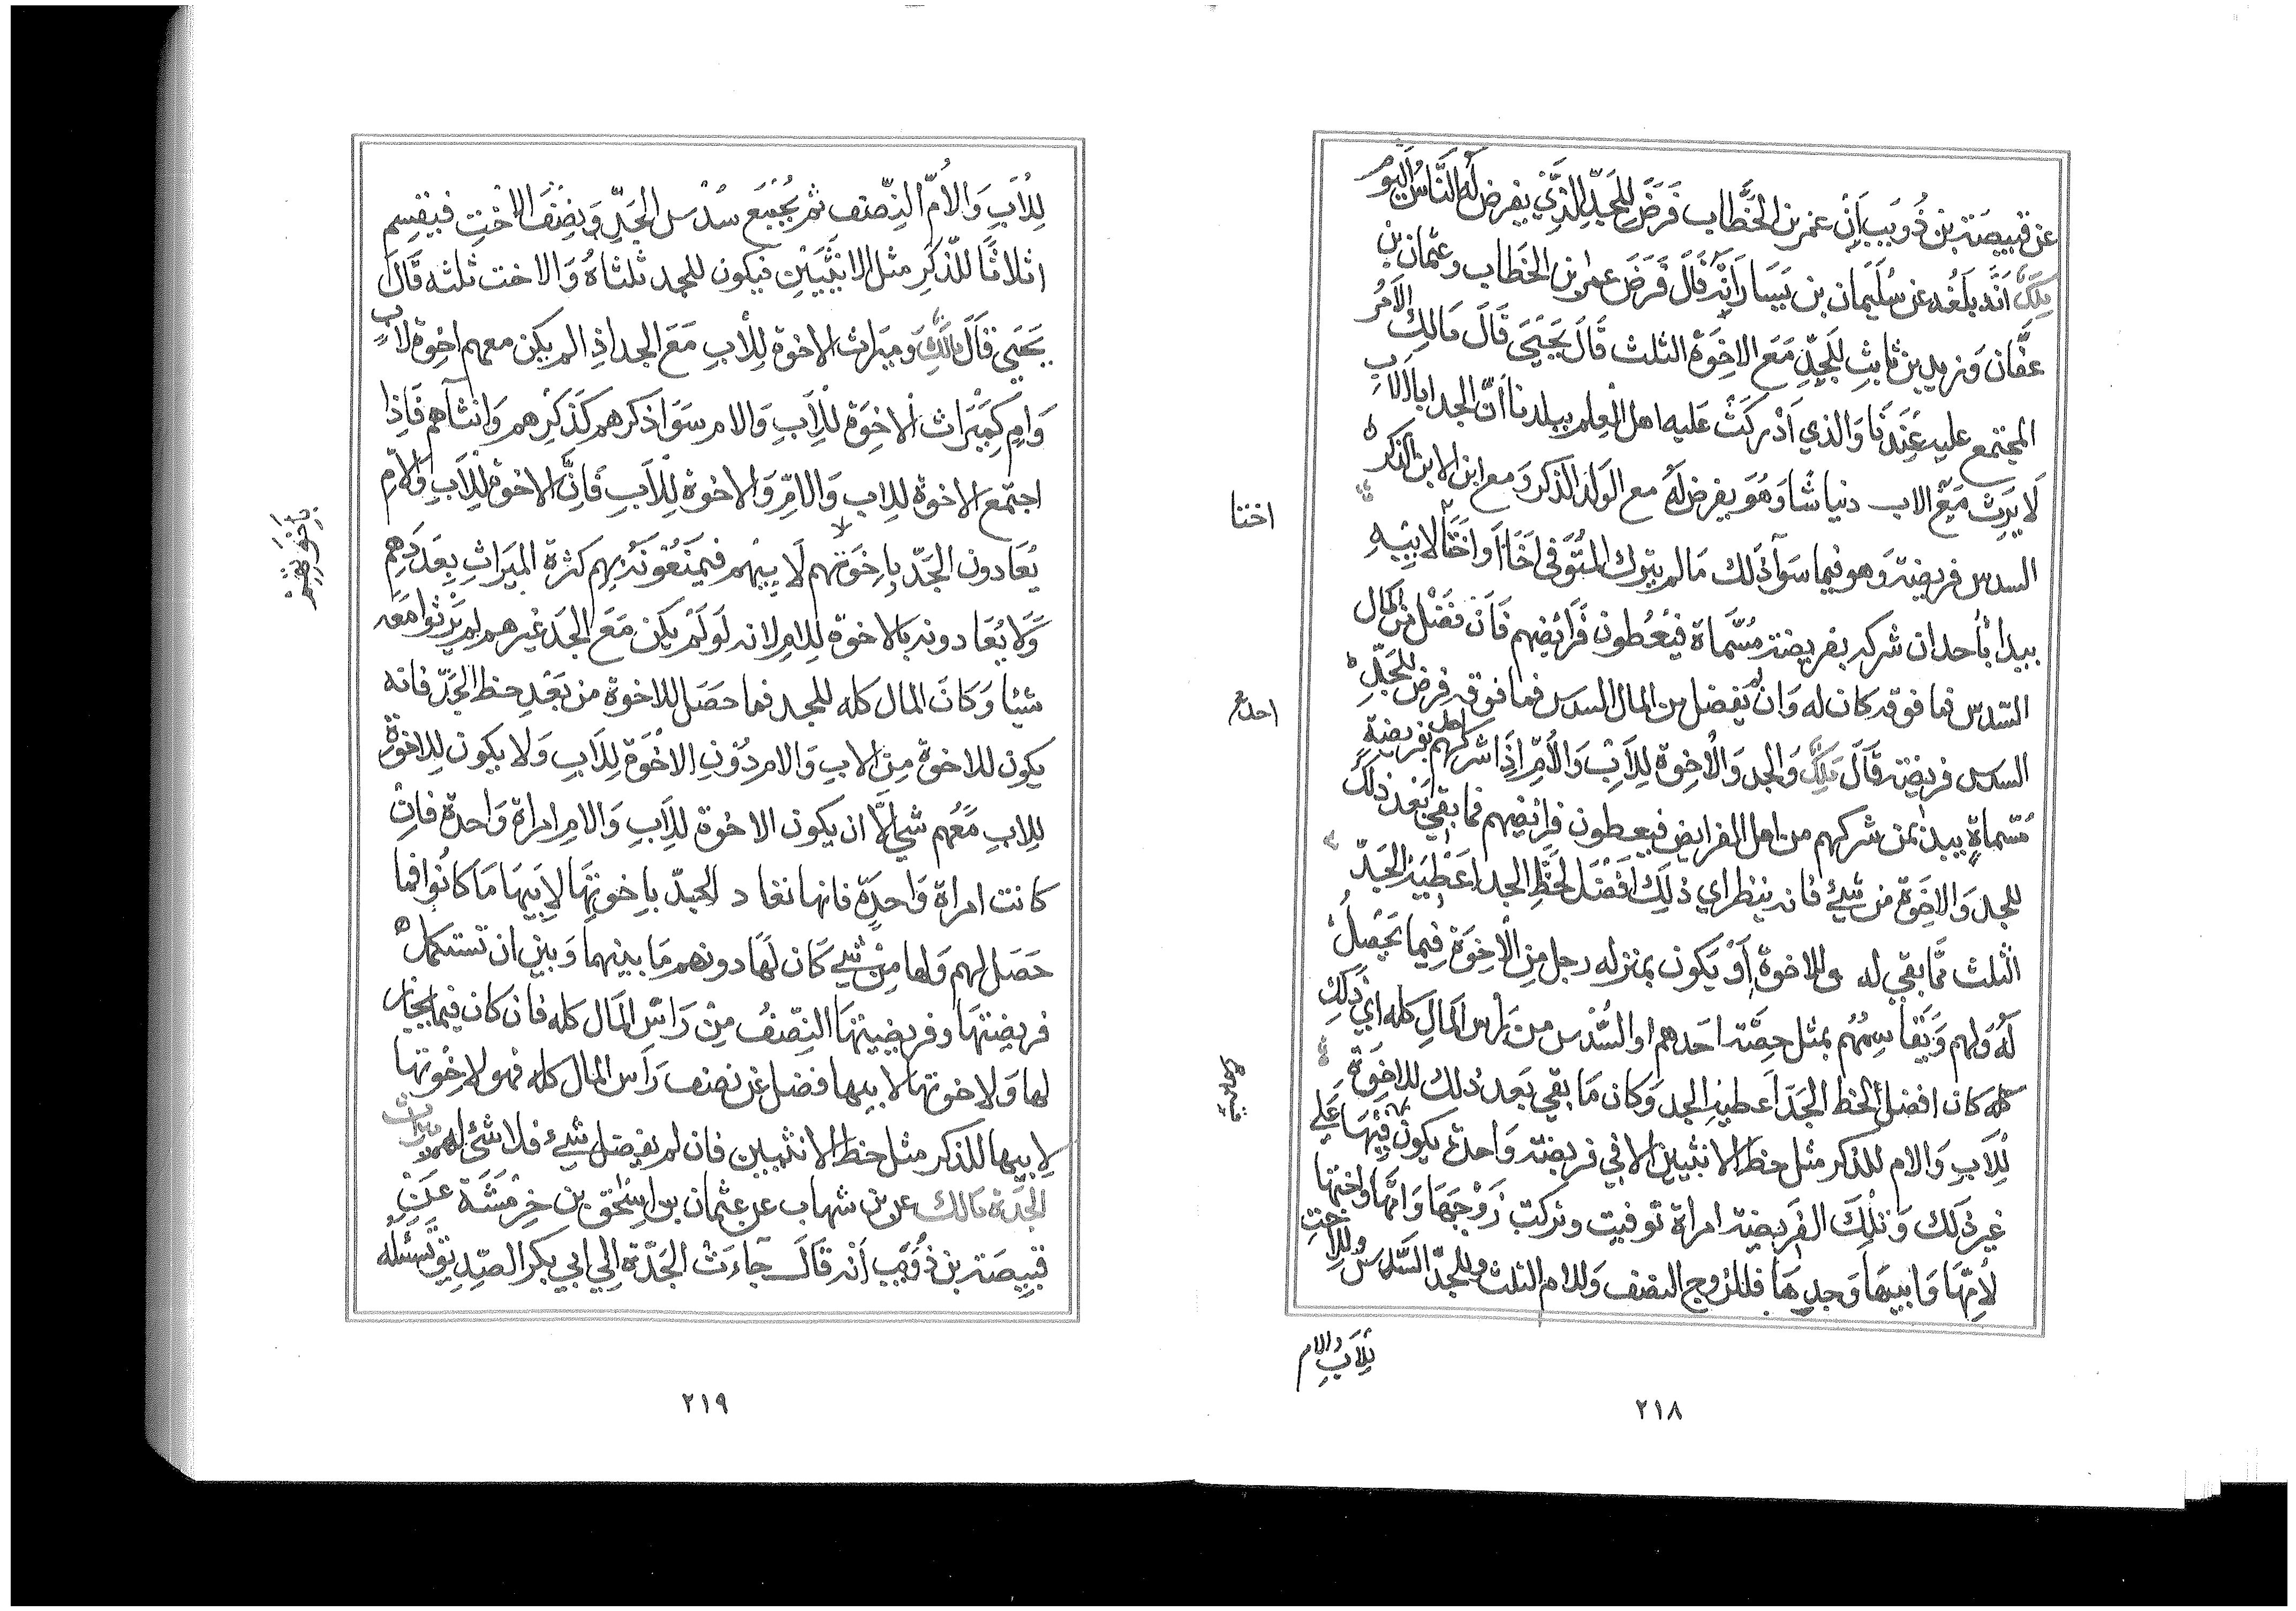 عن قبيصة بن ذويب ان عمر بن الخطاب فرض للجد الذي يفرض له الناس اليوم
ملك انه بلغه عن سليمان بن يسار انه قال فرض عمر بن الخطاب وعثمان بن
عفان وزيد بن ثابت للجد مع الاخوة الثلث قال يحيى قال مالك الامر
المجتمع عليه عندنا والذي ادركت عليه اهل العلم ببلدنا ان الجد ابا الاب
لا يرث مع الاب دنيا شا وهو يفرض له مع الولد الذكر ومع ابن الابن الذكر
السدس فريضة وهو فيما سوآ ذلك ما لم يترك المتوفى اخا او اختا لابيه
اختا
يبدا بأحد ان شركه بفريضة مسماة فيعطون فرائضهم فان فضل من المال
السدس فما فوقه كان له وان لم يفضل من المال السدس فما فوقه فرض للجد
السدس فريضة قال ملك والجد والاخوة للاب والام اذا شركهم احد بفريضة
مسماة يبدا بمن شركهم من اهل الفرايض فيعطون فرائضهم فما بقي بعد ذلك
للجد والاخوة من شيء فانه ينظر اي ذلك افضل لحظ الجد اعطيه الجد
الثلث مما بقي له وللاخوة او يكون بمنزله رجل من الاخوة فيما يحصل
له ولهم ويقاسمهم بمثل حصة احدهم او السدس من راس المال كله اي ذلك
كله كان افضل لحظ الجد اعطيه الجد وكان ما بقي بعد ذلك للاخوة
للاب والام للذكر مثل حظ الانثيين الا في فريضة واحدة يكون فيها على
غير ذلك وتلك الفريضة امراة توفيت وتركت زوجها وامها واختها
لامها وابيها وجدها فللزوج النصف وللام الثلث وللجد السدس وللاخت
للاب والام
٢١٨
للاب والام النصف ثم يجمع سدس الجد ونصف الاخت فيقسم
اثلاثا للذكر مثل الانثيين فيكون للجد ثلثاه والاخت ثلثه قال
يحيى قال مالك وميراث الاخوة للاب مع الجد اذ الم يكن معهم اخوة لاب
وام كميراث الاخوة للاب والام سوا ذكرهم كذكرهم وانثاهم فاذا
اجتمع الاخوة للاب والام والاخوة للاب فان الاخوة للاب والام
يعادون الجد باخوتهم لابيهم فيمنعونه بهم كثرة الميراث بعددهم
ولا يعادونه بالاخوة للام لانه لو لم يكن مع الجد غيرهم لم يرثوا معه
شيئا وكان المال كله للجد فما حصل للاخوة من بعد حظ الجد فانه
يكون للاخوة من الاب والام دون الاخوة للاب ولا يكون للاخوة
للاب معهم شي الا ان يكون الاخوة للاب والام امراة واحدة فان
كانت امراة واحدة فانها تعاد الجد باخوتها لابيها ما كانوا فما
حصل لهم ولها من شي كان لها دونهم ما بينها وبين ان تستكمل
فريضتها وفريضتها النصف من راس المال كله فان كان فيما يحاز
لها ولاخوتها لابيها فضل عن نصف راس المال كله فهو لاخوتها
لابيها للذكر مثل حظ الانثيين فان لم يفضل شيء فلا شئ لهم ميراث
الجدة مالك عن بن شهاب عن عثمان بن اسحق بن خرشة عن
قبيصة بن ذويب انه قال جاءت الجدة الى ابي بكر الصديق تسئله
٢١٩